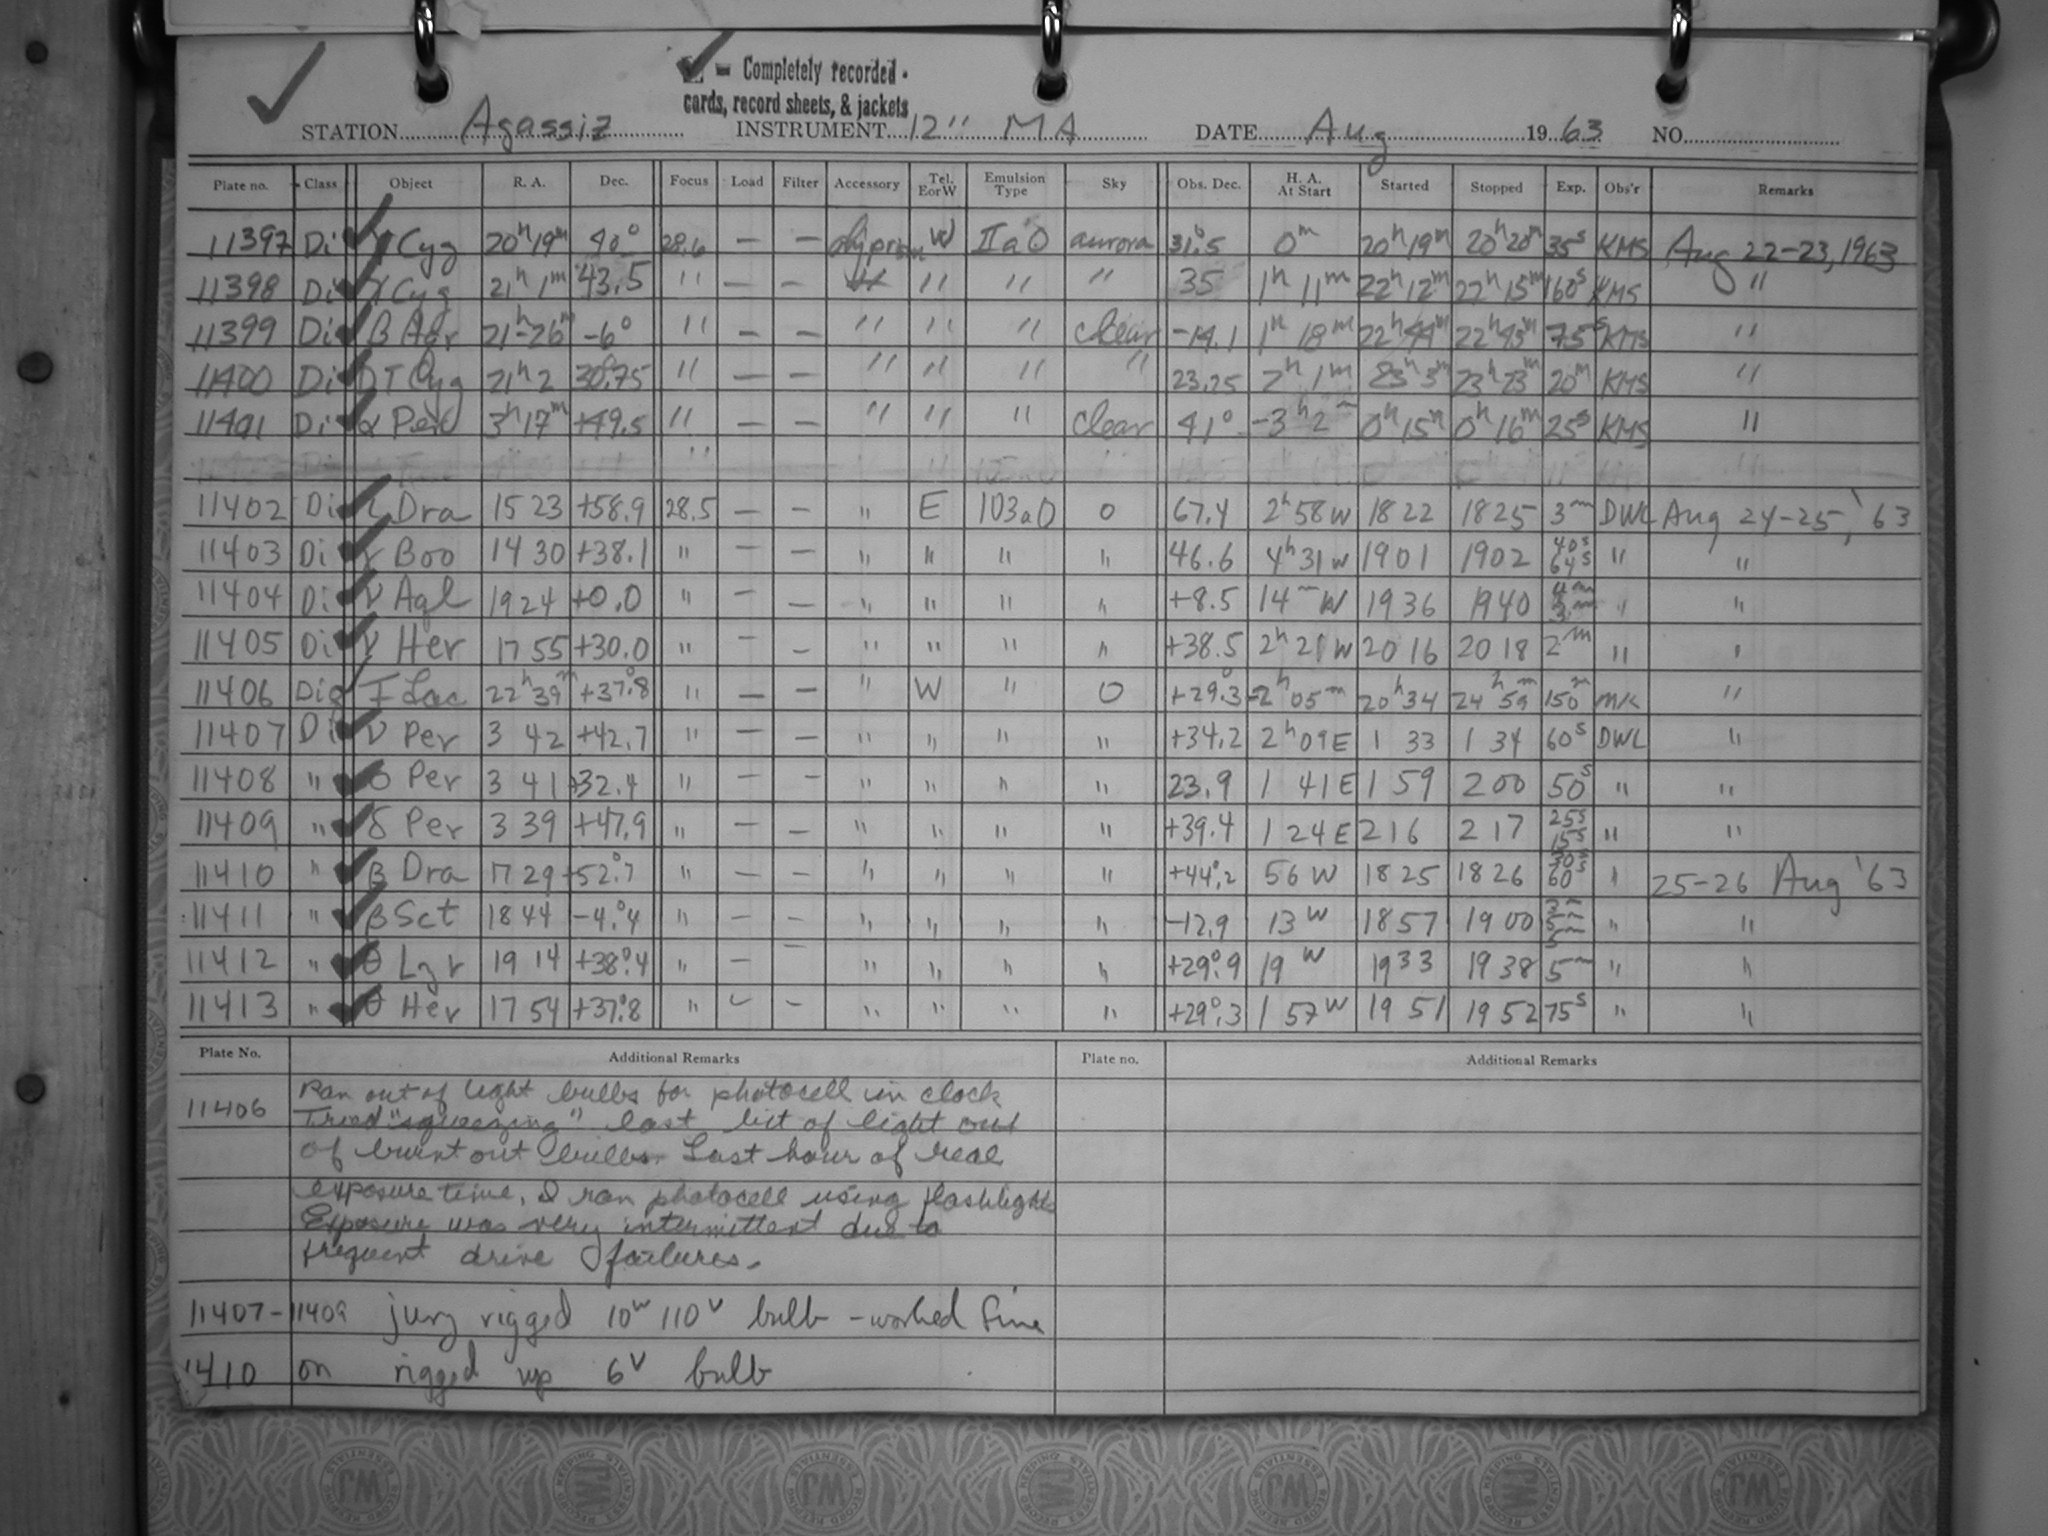 ✓ = Completely recorded - cards, record sheets, & jackets
STATION Agassiz INSTRUMENT 12" MA DATE Aug 1963 NO.
Plate no. Class Object R. A. Dec. Focus Load Filter Accessory Tel. E or W Emulsion Type Sky Obs. Dec. H. A. At Start Started Stopped Exp. Obs'r Remarks
11397 Di γ Cyg 20h 19m 40° 28.6 — — W IIaO aurora 31°.5 0m 20h 19m 20h 20m 35s KMS Aug 22-23, 1963
11398 Di Cyg 21h 1m 43.5 " — — " " " 35 1h 11m 22h 12m 22h 15m 160s KMS "
11399 Di β Aqr 21h 26m -6° " — — " " " clear -14.1 1h 18m 22h 44m 22h 45m 75s KMS "
11400 Di T Cyg 21h 2 30°.75 " — — " " " " 23.25 2h 1m 23h 3m 23h 23m 20m KMS "
11401 Di α Per 3h 17m +49.5 " — — " " " clear 41° -3h 2m 0h 15m 0h 16m 25s KMS "
11402 Di ι Dra 15 23 +58.9 28.5 — — " E 103aO 0 67.4 2h 58 W 18 22 18 25 3m DWL Aug 24-25, '63
11403 Di γ Boo 14 30 +38.1 " — — " " " " 46.6 4h 31 W 19 01 19 02 40s 64s " "
11404 Di ν Aql 19 24 +0.0 " — — " " " " +8.5 14m W 19 36 19 40 3m " "
11405 Di ν Her 17 55 +30.0 " — — " " " " +38.5 2h 21 W 20 16 20 18 2m " "
11406 Dig Lac 22h 39m +37°.8 " — — " W " 0 +29°.3 -2h 05m 20h 34 24h 59m 150m MK "
11407 Di ν Per 3 42 +42.7 " — — " " " " +34.2 2h 09 E 1 33 1 34 60s DWL "
11408 " ο Per 3 41 +32.4 " — — " " " " 23.9 1 41 E 1 59 2 00 50s " "
11409 " δ Per 3 39 +47.9 " — — " " " " +39.4 1 24 E 2 16 2 17 25s 15s " "
11410 " β Dra 17 29 +52°.7 " — — " " " " +44°.2 56 W 18 25 18 26 30s 60s " 25-26 Aug '63
11411 " β Sct 18 44 -4.°4 " — — " " " " -12.9 13 W 18 57 19 00 " "
11412 " θ Lyr 19 14 +38°.4 " — — " " " " +29°.9 19 W 19 33 19 38 5m " "
11413 " θ Her 17 54 +37°.8 " — — " " " " +29°.3 1 57 W 19 51 19 52 75s " "
Plate No. Additional Remarks Plate no. Additional Remarks
11406 Ran out of light bulbs for photocell in clock
Tried "squeezing" last bit of light out
of burnt out bulbs. Last hour of real
exposure time, I ran photocell using flashlight
Exposure was very intermittent due to
frequent drive failures.
11407-11409 jury rigged 10w 110v bulb - worked fine
11410 on rigged up 6v bulb